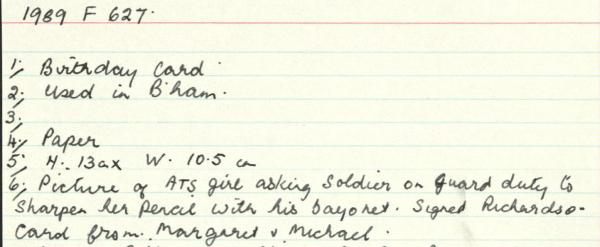 1989 F 627.
1; Birthday Card
2; Used in B'ham.
3;
4; Paper
5; H. 13cm x W. 10.5 cm
6; Picture of ATS girl asking soldier on guard duty to
sharpen her pencil with his bayonet. Signed Richardso-
Card from. Margaret & Michael.